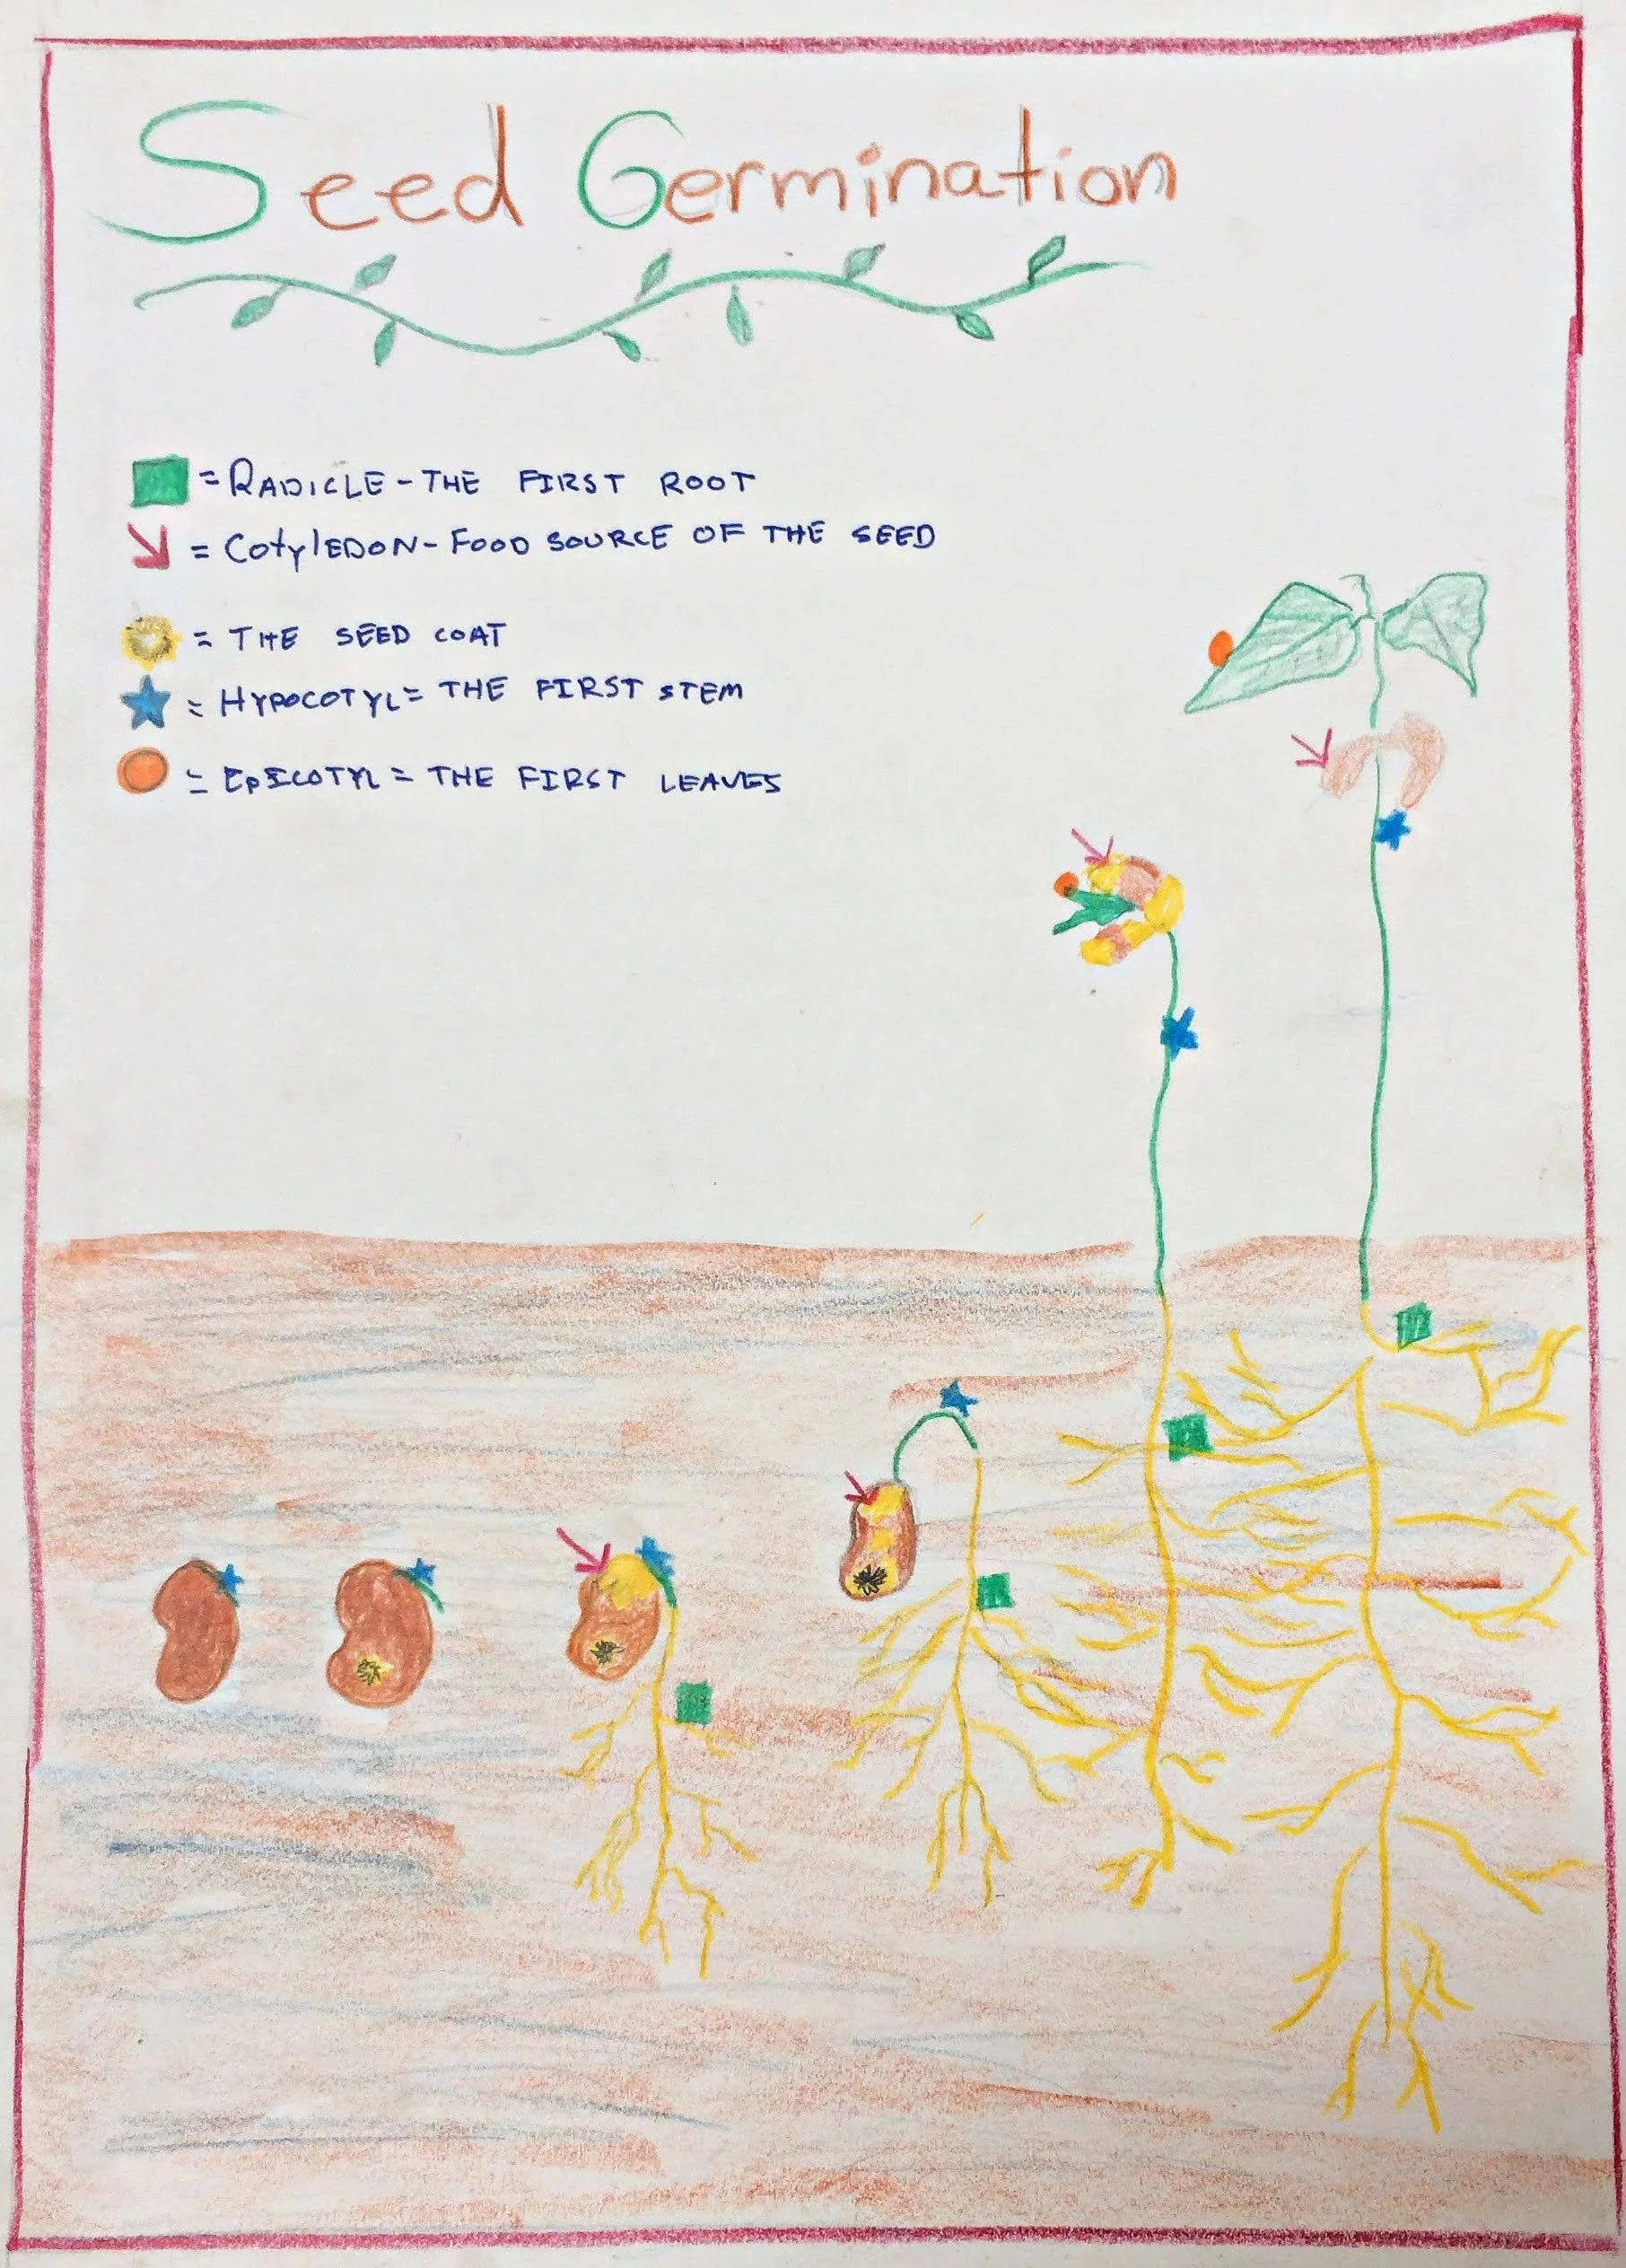 Seed Germination
= RADICLE - THE FIRST ROOT
= CotylEDON - FOOD SOURCE OF THE SEED
= THE SEED COAT
= HYPOCOTYL = THE FIRST STEM
= EpICOTYL = THE FIRST LEAVES